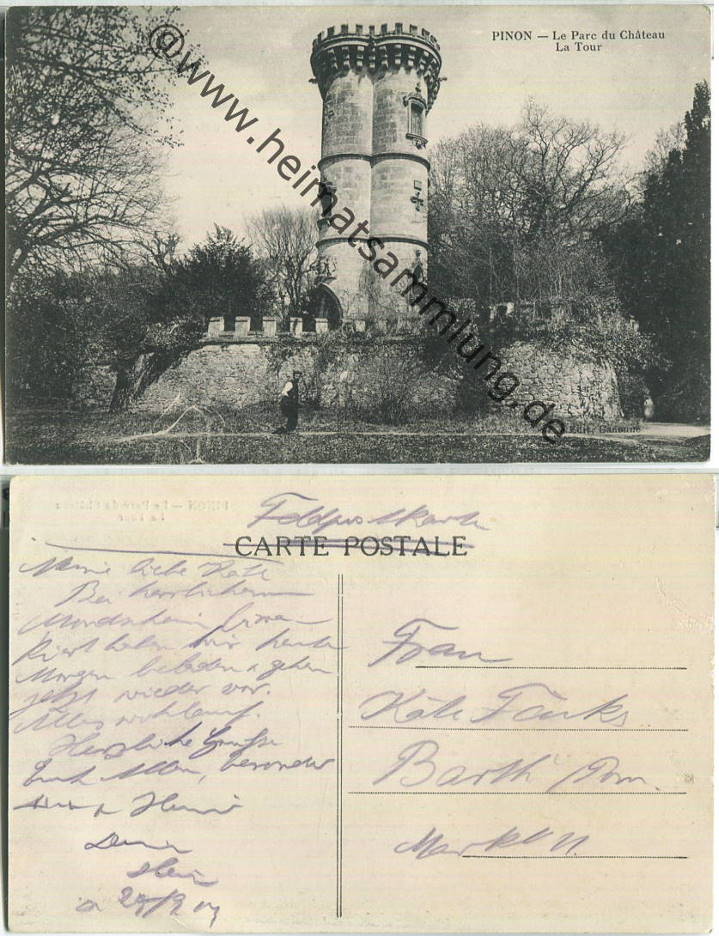 PINON — Le Parc du Château
La Tour
@www.heimatsammlung.de
Feldpostkarte
CARTE POSTALE
Meine liebe Käte
Bei herrlichem
Mondschein
haben wir heute
Morgen gehen
jetzt wieder vor.
Alles wohlauf.
Herzliche Grüße
Euch Allen, besonders
Dein
Frau
Käte
Barth Pom.
Markt 11.